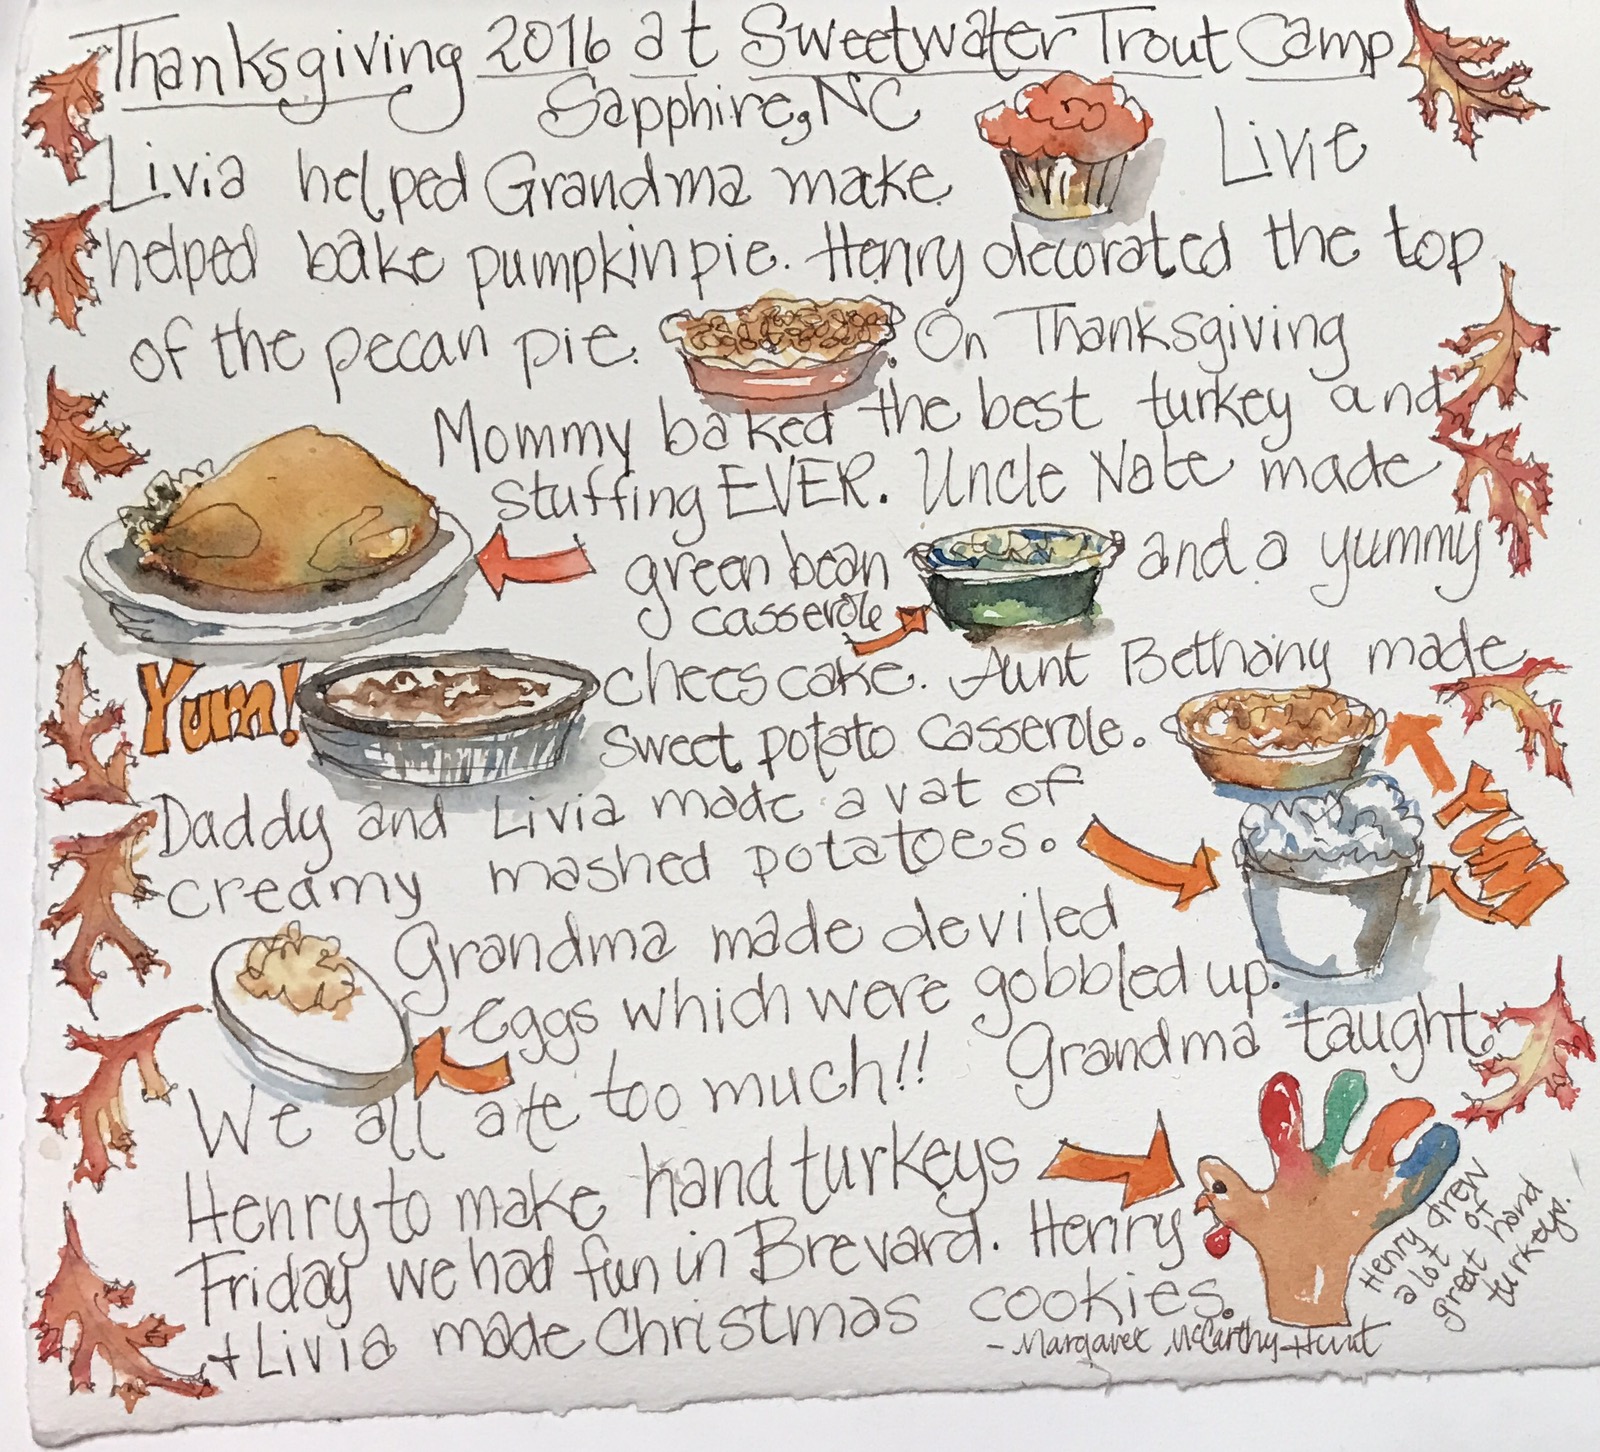 Thanksgiving 2016 at Sweetwater Trout Camp
Sapphire, NC
Livia helped Grandma make Livie
helped bake pumpkin pie. Henry decorated the top
of the pecan pie. On Thanksgiving
Mommy baked the best turkey and
stuffing EVER. Uncle Nate made
green bean and a yummy
casserole
Yum! cheescake. Aunt Bethany made
sweet potato casserole.
YUM
Daddy and Livia made a vat of
creamy mashed potatoes.
Grandma made deviled
eggs which were gobbled up.
We all ate too much!! Grandma taught
Henry to make hand turkeys
Friday we had fun in Brevard. Henry
+ Livia made Christmas cookies.
Henry drew
a lot of
great hand
turkeys.
- Margaret McCarthy-Hunt